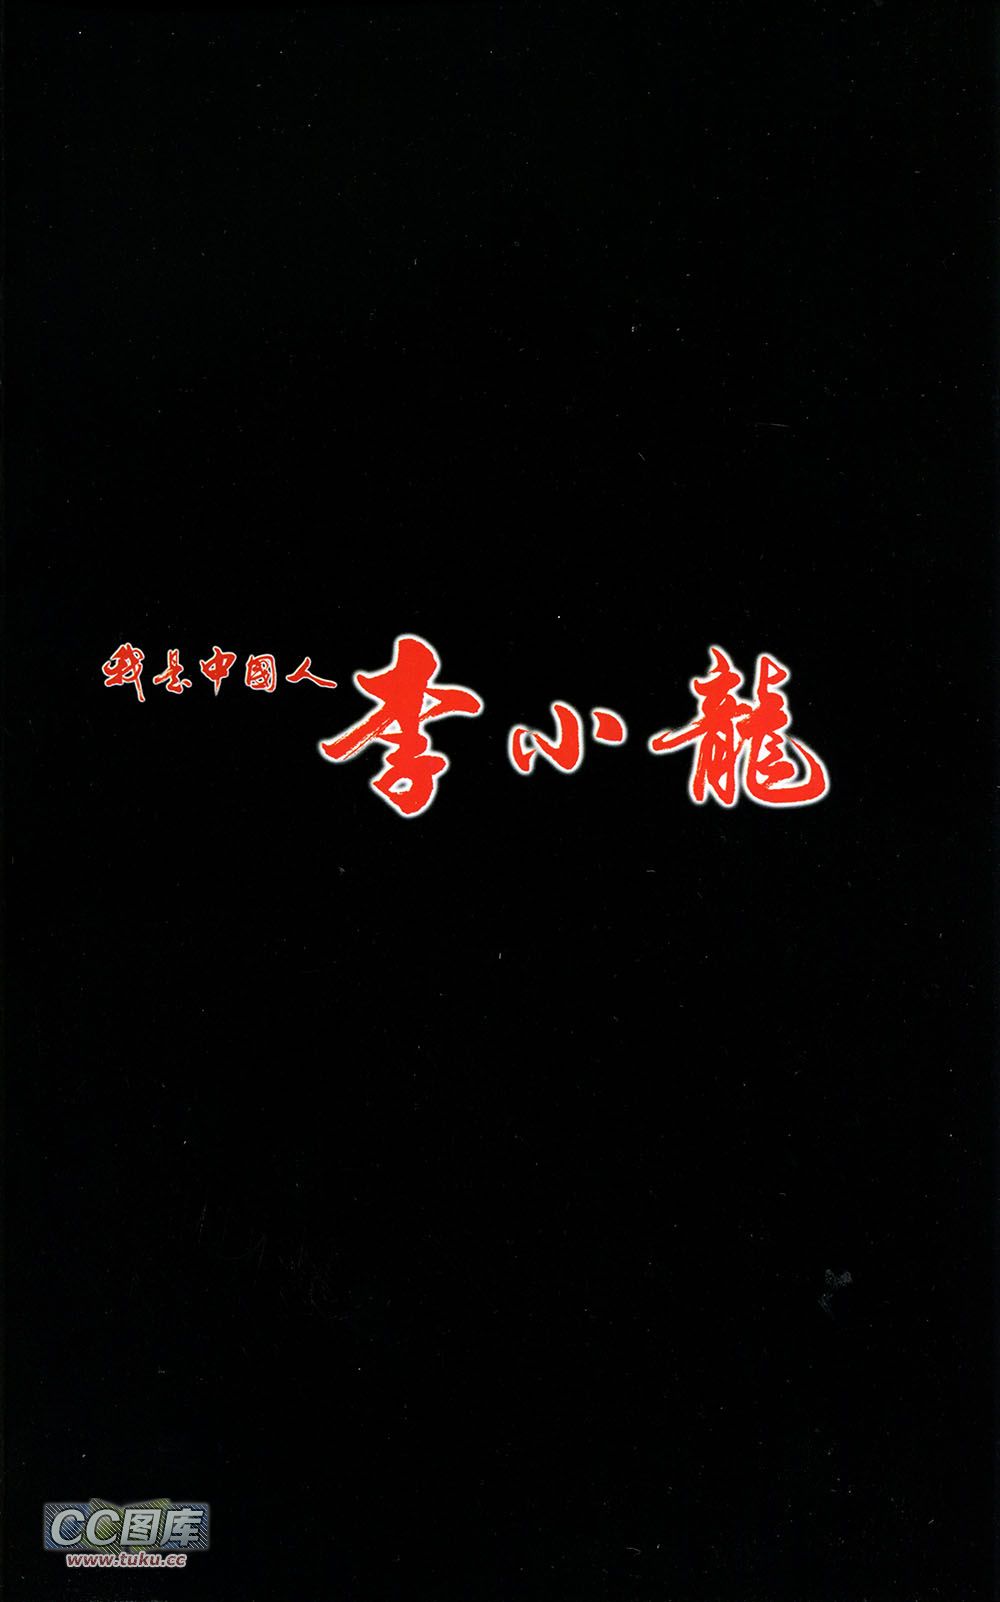 我是中國人 李小龍
CC图库
www.tuku.cc